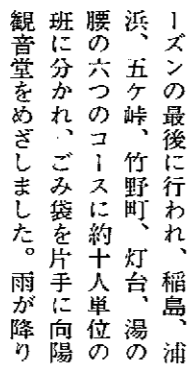 ーズンの最後に行われ、稲島、浦
浜、五ケ峠、竹野町、灯台、湯の
腰の六つのコースに約十人単位の
班に分かれ、ごみ袋を片手に向陽
観音堂をめざしました。雨が降り